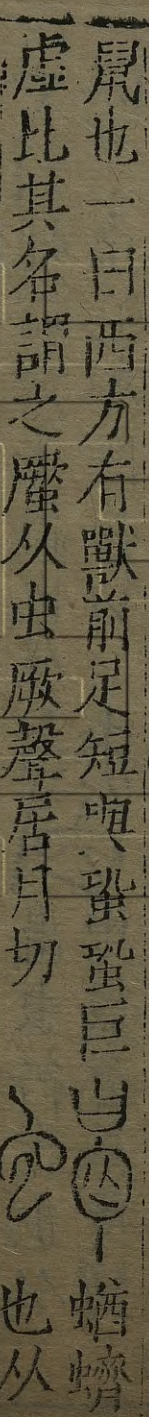 鼠也一曰西方有獸前足短與蛩蛩巨
虛比其名謂之蟨从虫厥聲居月切
蝤蠐
也从